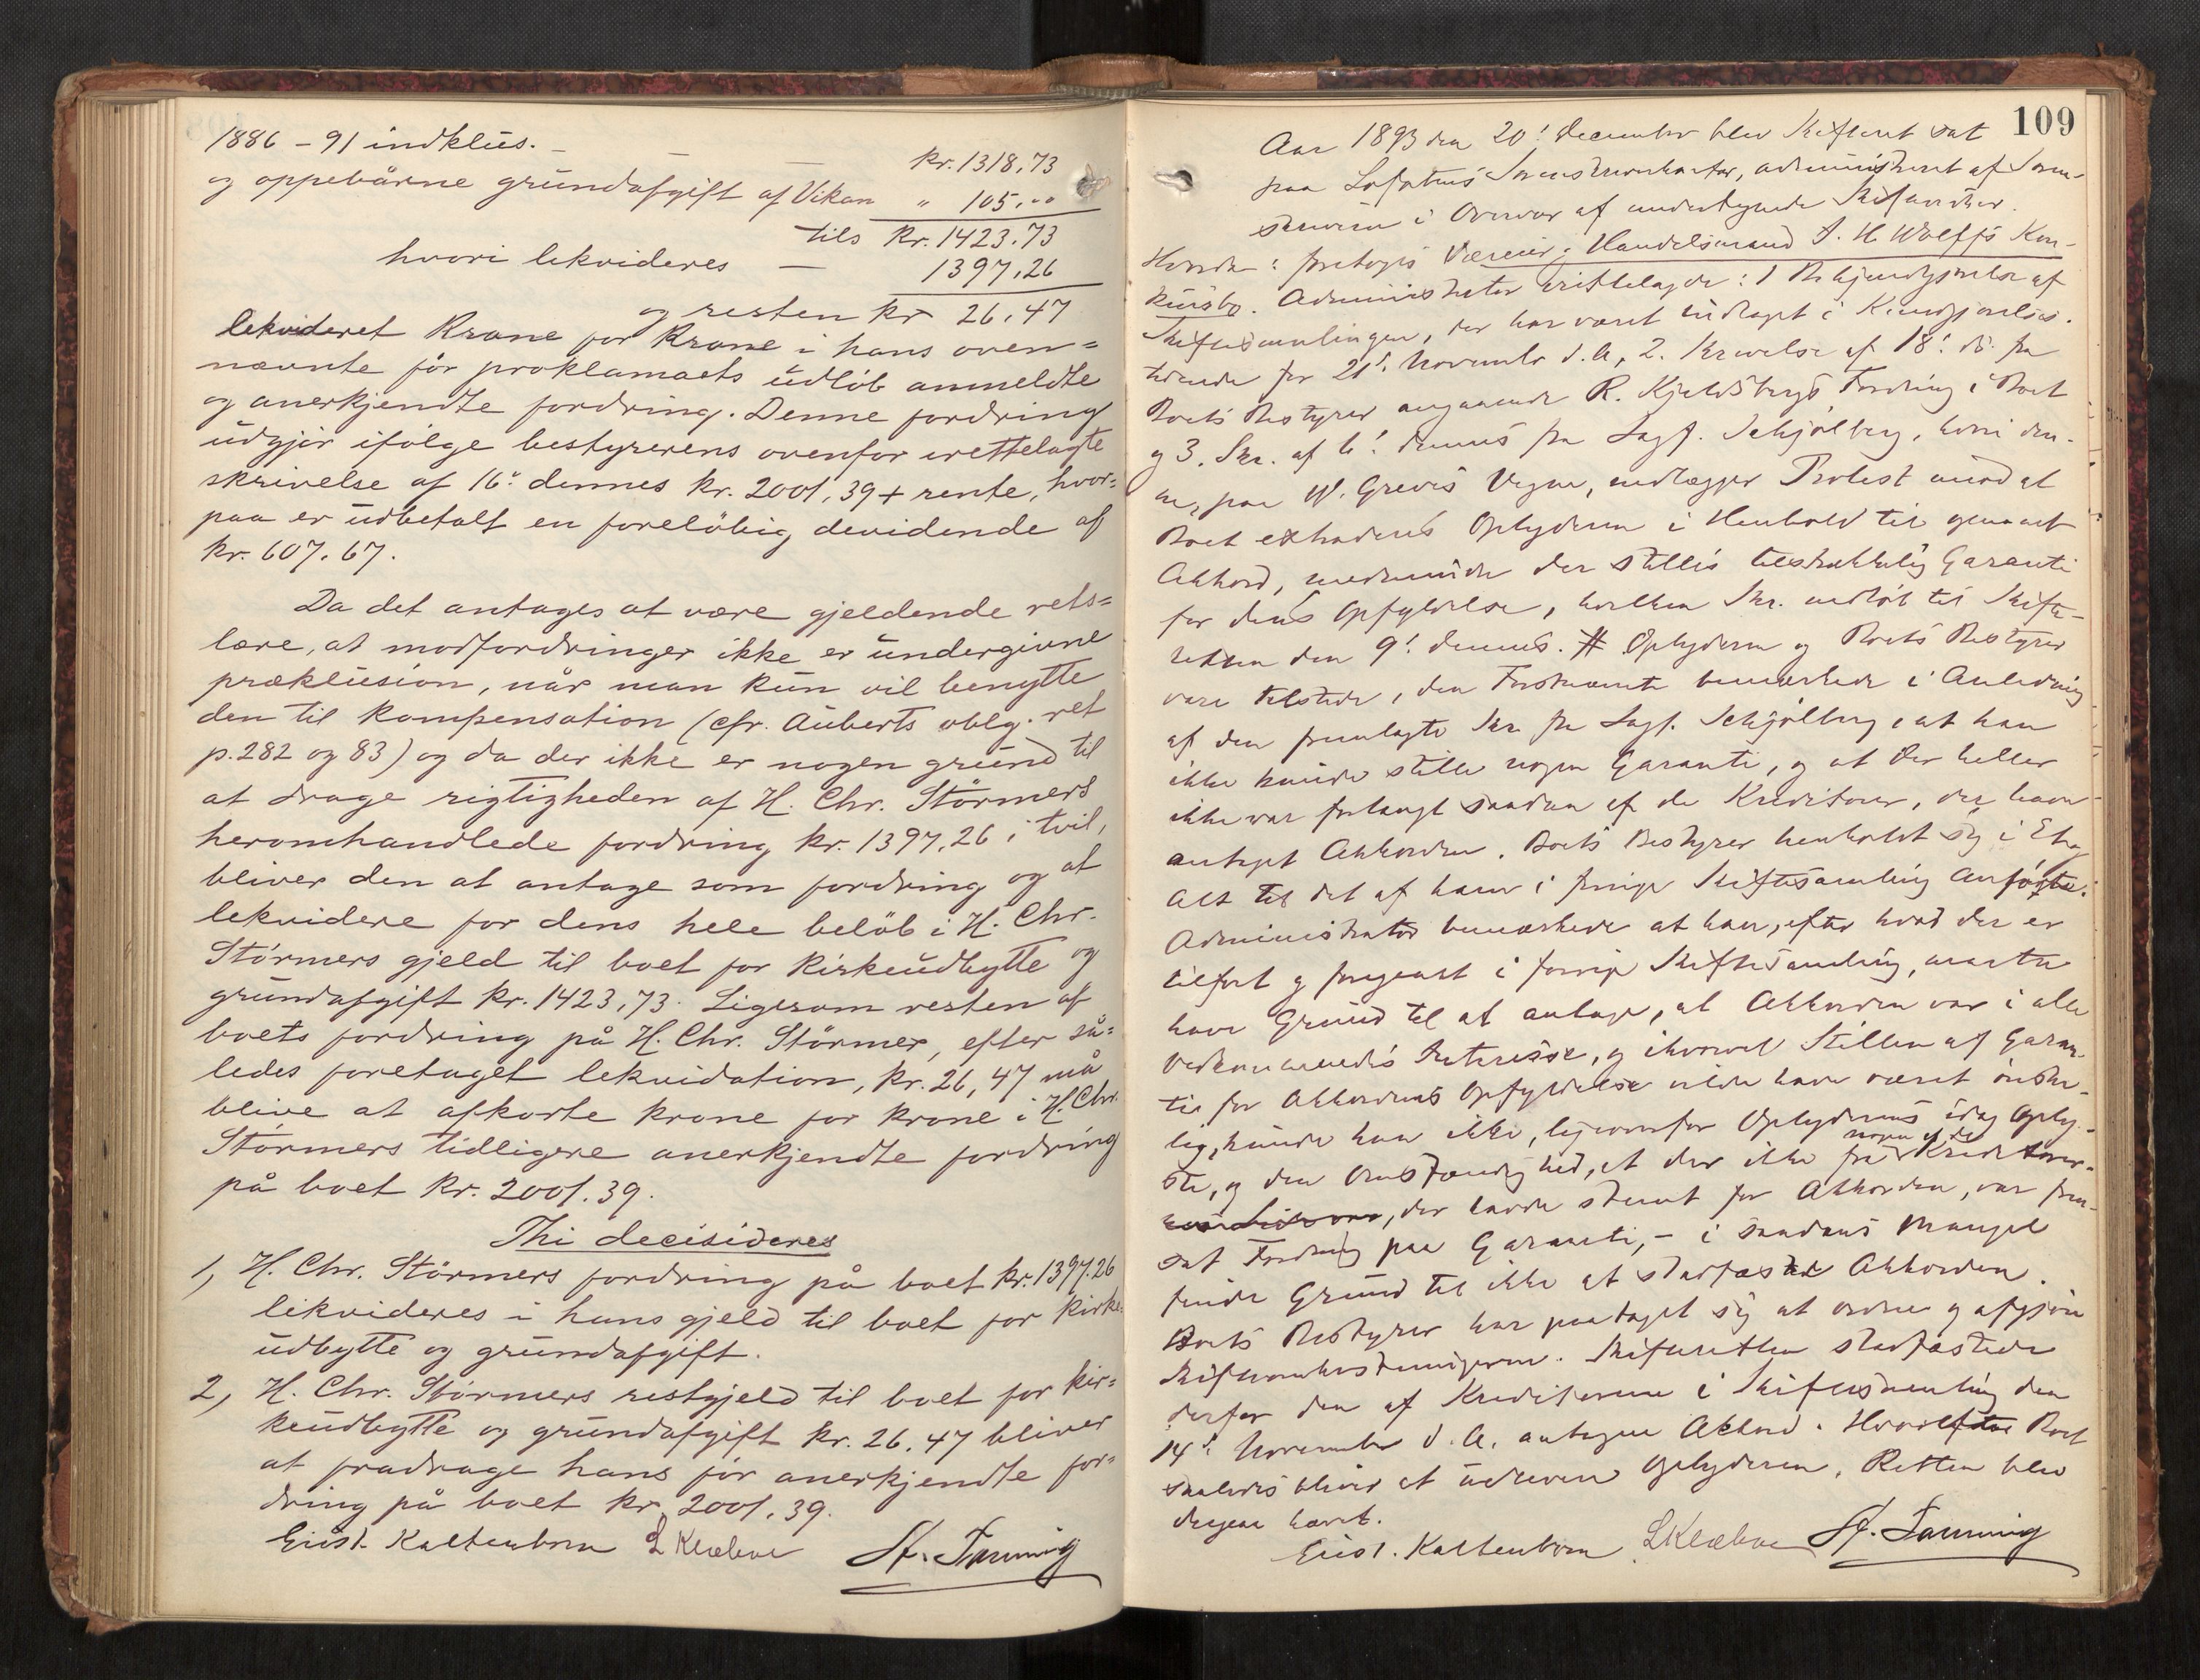 1886 – 91 indklus. – – – Kr. 1318,73
og oppebårne grundafgift af Vikan " 105,00
tils Kr. 1423,73
hvori lekvideres – 1397,26
og resten Kr 26,47
lekvideret Krone for Krone i hans oven=
nævnte før proklamaets udløb anmeldte
og anerkjendte fordring. Denne fordring
udgjør ifølge bestyrerens ovenfor irettelagte
skrivelse af 16: dennes kr. 2001,39 + rente, hvor=
paa er udbetalt en foreløbig devidende af
kr. 607.67.
Da det antages at være gjeldende rets=
lære, at modfordringer ikke er undergivne
præklusion, når man kun vil benytte
den til kompensation (cfr. Auberts oblg. ret
p. 282 og 83) og da der ikke er nogen grund til
at drage rigtigheden af H. Chr. Störmers
heromhandlede fordring kr. 1397,26 i tvil,
bliver den at antage som fordring og at
lekvidere for dens hele beløb i H. Chr.
Störmers gjeld til boet for kirkeudbytte og
grundafgift kr. 1423,73. Ligesom resten af
boets fordring på H. Chr. Störmer, efter så=
ledes foretaget lekvidation, kr. 26,47 må
blive at afkorte krone for krone i H. Chr.
Störmers tidligere anerkjendte fordring
på boet kr. 2001.39.
Thi decisideres
1, H. Chr. Störmers fordring på boet kr. 1397.26
likvideres i hans gjeld til boet for kirke=
udbytte og grundafgift.
2, H. Chr. Störmers restgjeld til boet for kir=
keudbytte og grundafgift kr. 26.47 bliver
at fradrage hans før anerkjendte for=
dring på boet kr. 2001.39.
Erist. Kaltenborn L Klæboe A. Fanning
109
Aar 1893 den 20! December blev Skifteret sat
paa Lofotens Sorenskriverkontor, administreret af Soren-
skriveren i Overvær af undertegnede Skiftevidner.
Hvorda: foretoges Væreier, Handelsmand J. H. Wolffs Kon-
kursbo. Administrator irettelagde: 1 Bekjendtgjørelse af
Skiftesamlingen, der har været indtaget i Kundgjørelses-
tidende for 21! November d. A, 2. Skrivelse af 18! ds. fra
Boets Bestyrer angaaende R. Kjeldsbergs Fordring i Boet
og 3. Skr. af 6! dennes fra Sagf. Schjølberg, hvori den-
ne, paa W. Greves Vegne, nedlægger Protest mod at
Boet extraderes Opbyderen i Henhold til gjennet
Akkord, medmindre der stilles tilstrækkelig Garanti
for dens Opfyldelse, hvilken Skr. indløb til Skifte-
retten den 9! dennes. # Opbyderen og Boets Bestyrer
vare tilstede, den Førstnævnte bemærkede i Anledning
af den fremlagte Skr. fra Sagf. Schjølberg, at han
ikke kunde stille nogen Garanti, og at der heller
ikke var forlangt saadan af de Kreditorer, der havde
antaget Akkorden. Boets Bestyrer henholdt sig i Et og
Alt til det af ham i forrige Skiftesamling Anførte.
Administrator bemærkede at han, efter hvad der er
tilført og foregaaet i forrige Skiftesamling, maatte
have Grund til at antage, at Akkorden var i alle
Vedkommendes Interesse, og ihvorvel Stillen af Garan-
ti for Akkordens Opfyldelse vilde have været ønske-
lig, kunde han ikke, ligeoverfor Opbyderens idag Oply-
ste, og den Omstændighed, at der ikke fra nogen af de Kreditorer-
, der havde stemt for Akkorden, var frem-
sat Fordring paa Garanti, – i saadans Mangel
finde Grund til ikke at stadfæste Akkorden.
Boets Bestyrer har paataget sig at ordne og afgjøre
Skifteomkostningerne. Skifteretten stadfæstede
derfor den af Kreditorerne i Skiftesamling den
14! November d. A. antagne Akkord. Hvorefter Boet
saaledes bliver at udlevere Opbyderen. Retten blev
derpaa hævet.
Erist. Kaltenborn LKlæboe A. Fanning